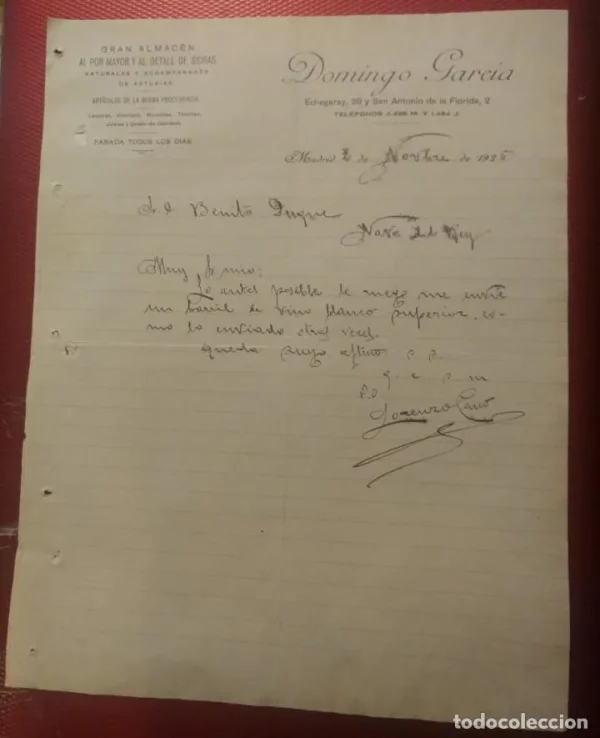 GRAN ALMACÉN
AL POR MAYOR Y AL DETALL DE SIDRAS
NATURALES Y ACHAMPANADAS
DE ASTURIAS
ARTÍCULOS DE LA MISMA PROCEDENCIA
FABADA TODOS LOS DÍAS
Domingo García
Echegaray, 20 y San Antonio de la Florida, 2
TELÉFONOS M. Y J.
Madrid 2 de Novbre de 1925
Sr D Benito Duque
Nava del Rey
Muy Sr mio:
Lo antes posible le ruego me envie
un barril de vino blanco superior, co-
mo lo enviado otras veces.
Queda suyo affmo
q e s m
P.O
Lorenzo Cano
todocoleccion
todocoleccion.net